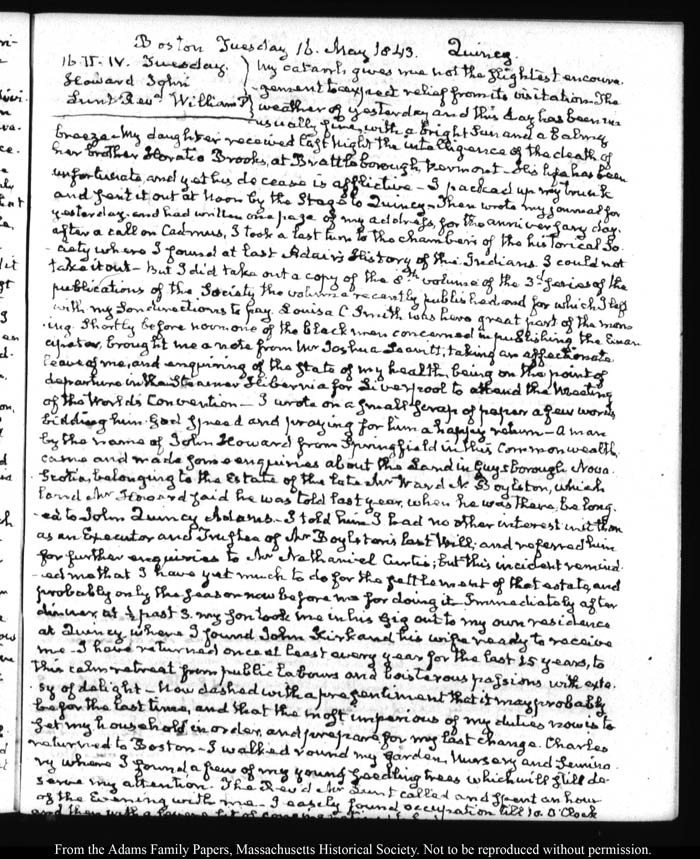 Boston Tuesday 16. May 1843. Quincy
16. II. IV. Tuesday. } My catarrh gives me not the slightest encoura-
Howard John } gement to expect relief from its visitation. The
Lunt Revd. William P } weather of yesterday and this day has been un-
usually fine, with a bright Sun and a balmy
breeze. My daughter received last Night the intelligence of the death of
her brother Horatio Brooks, at Brattleborough, Vermont – His life has been
unfortunate and yet his decease is afflictive – I packed up my trunk
and sent it out at Noon by the Stage to Quincy – Then wrote my journal for
yesterday, and had written one page of my address, for the anniversary day.
after a call on Cadmus, I took a last turn to the chambers of the historical So-
ciety where I found at last Adair's History of the Indians. I could not
take it out – But I did take out a copy of the 8th volume of the 3d. series of the
publications of the Society the volume recently published, and for which I left
with my Son directions to pay. Louisa C Smith was here great part of the morn
ing. Shortly before noon one of the black men concerned in publishing the Eman
cipator, brought me a note from Mr Joshua Leavitt, taking an affectionate
leave of me, and enquiring of the state of my health, being on the point of
departure in the Steamer Hibernia for Liverpool to attend the Meeting
of the World's Convention – I wrote on a small scrap of paper a few words
bidding him God speed and praying for him a happy return – A man
by the name of John Howard from Springfield in this Commonwealth
came and made some enquiries about the Land in Guysborough Nova
Scotia, belonging to the Estate of the late Mr Ward N. Boylston, which
land Mr Howard said he was told last year, when he was there, belong-
ed to John Quincy Adams – I told him I had no other interest in it than
as an Executor and Trustee of Mr Boylston's last Will; and referred him
for further enquiries to Mr Nathaniel Curtis; but this incident remind-
ed me that I have yet much to do for the settlement of that estate, and
probably only the season now before me for doing it – Immediately after
dinner, at ½ past 3. my Son took me in his Gig out to my own residence
at Quincy, where I found John Kirk and his wife ready to receive
me – I have returned once at least every year for the last 15 years, to
this calm retreat from public labours and boisterous passions with exta-
sy of delight – Now dashed with a presentiment that it may probably
be for the last time, and that the most imperious of my duties now is to
set my household in order, and prepare for my last change. Charles
returned to Boston – I walked round my Garden, Nursery and Semina-
ry where I found a few of my young seedling trees which will still de-
serve my attention. The Rev'd Mr Lunt called and spent an hour
of the Evening with me – I easily found occupation till 10. O'Clock
and then with a
From the Adams Family Papers, Massachusetts Historical Society. Not to be reproduced without permission.